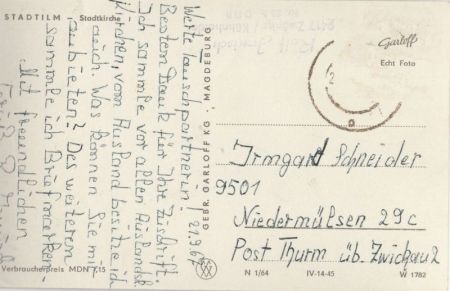 STADTILM - Stadtkirche
Werte Tauschpartnerin! 21.9.67
Besten Dank für Ihre Zuschrift.
Ich sammle vor allem Auslands-
Kirchen, vom Ausland besitze ich
auch. Was können Sie mir
anbieten? Des weiteren
sammle ich Briefmarken.
Mit freundlichen
GEBR. GARLOFF KG · MAGDEBURG
Garloff
Echt Foto
Irmgard Schneider
9501
Niedermülsen 29c
Post Thurm üb. Zwickau 2
Verbraucherpreis MDN 1,15
N 1/64
IV-14-45
W 1782